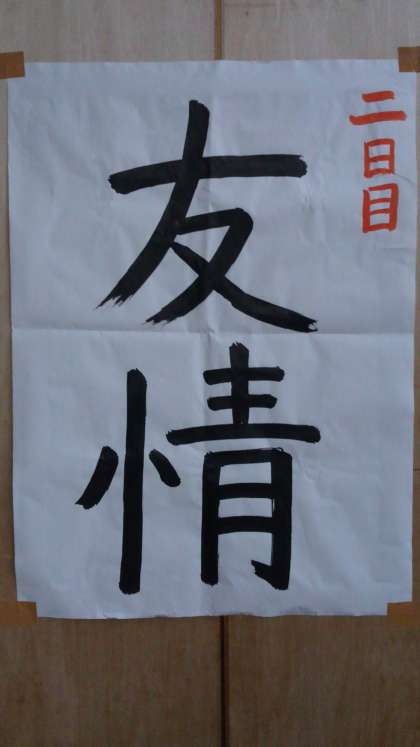 二日目
友情